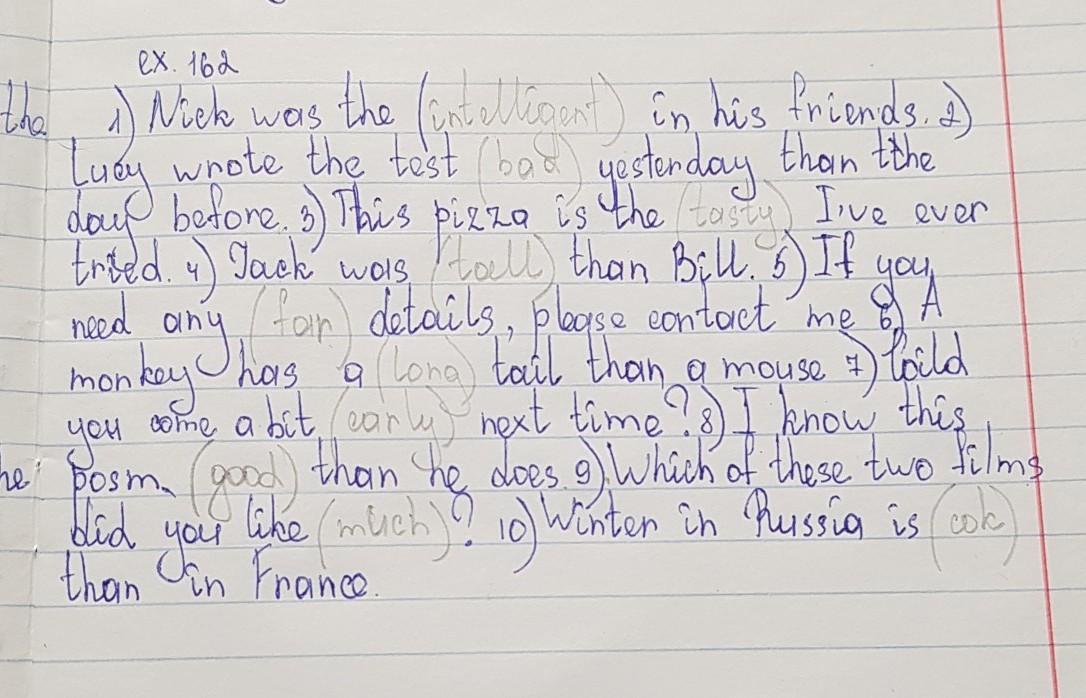 ex. 162
the 1) Nick was the (intelligent) in his friends. 2)
Lucy wrote the test (bad) yesterday than tthe
day before. 3) This pizza is the (tasty) I,ve ever
tried. 4) Jack was (tall) than Bill. 5) If you
need any (far) details, please contact me 6) A
monkey has a (long) tail than a mouse 7) Coild
you come a bit (early) next time? 8) I know this
he posm (good) than he does 9) Which of these two films
did you like (much)? 10) Winter in Russia is (cok)
than in France.